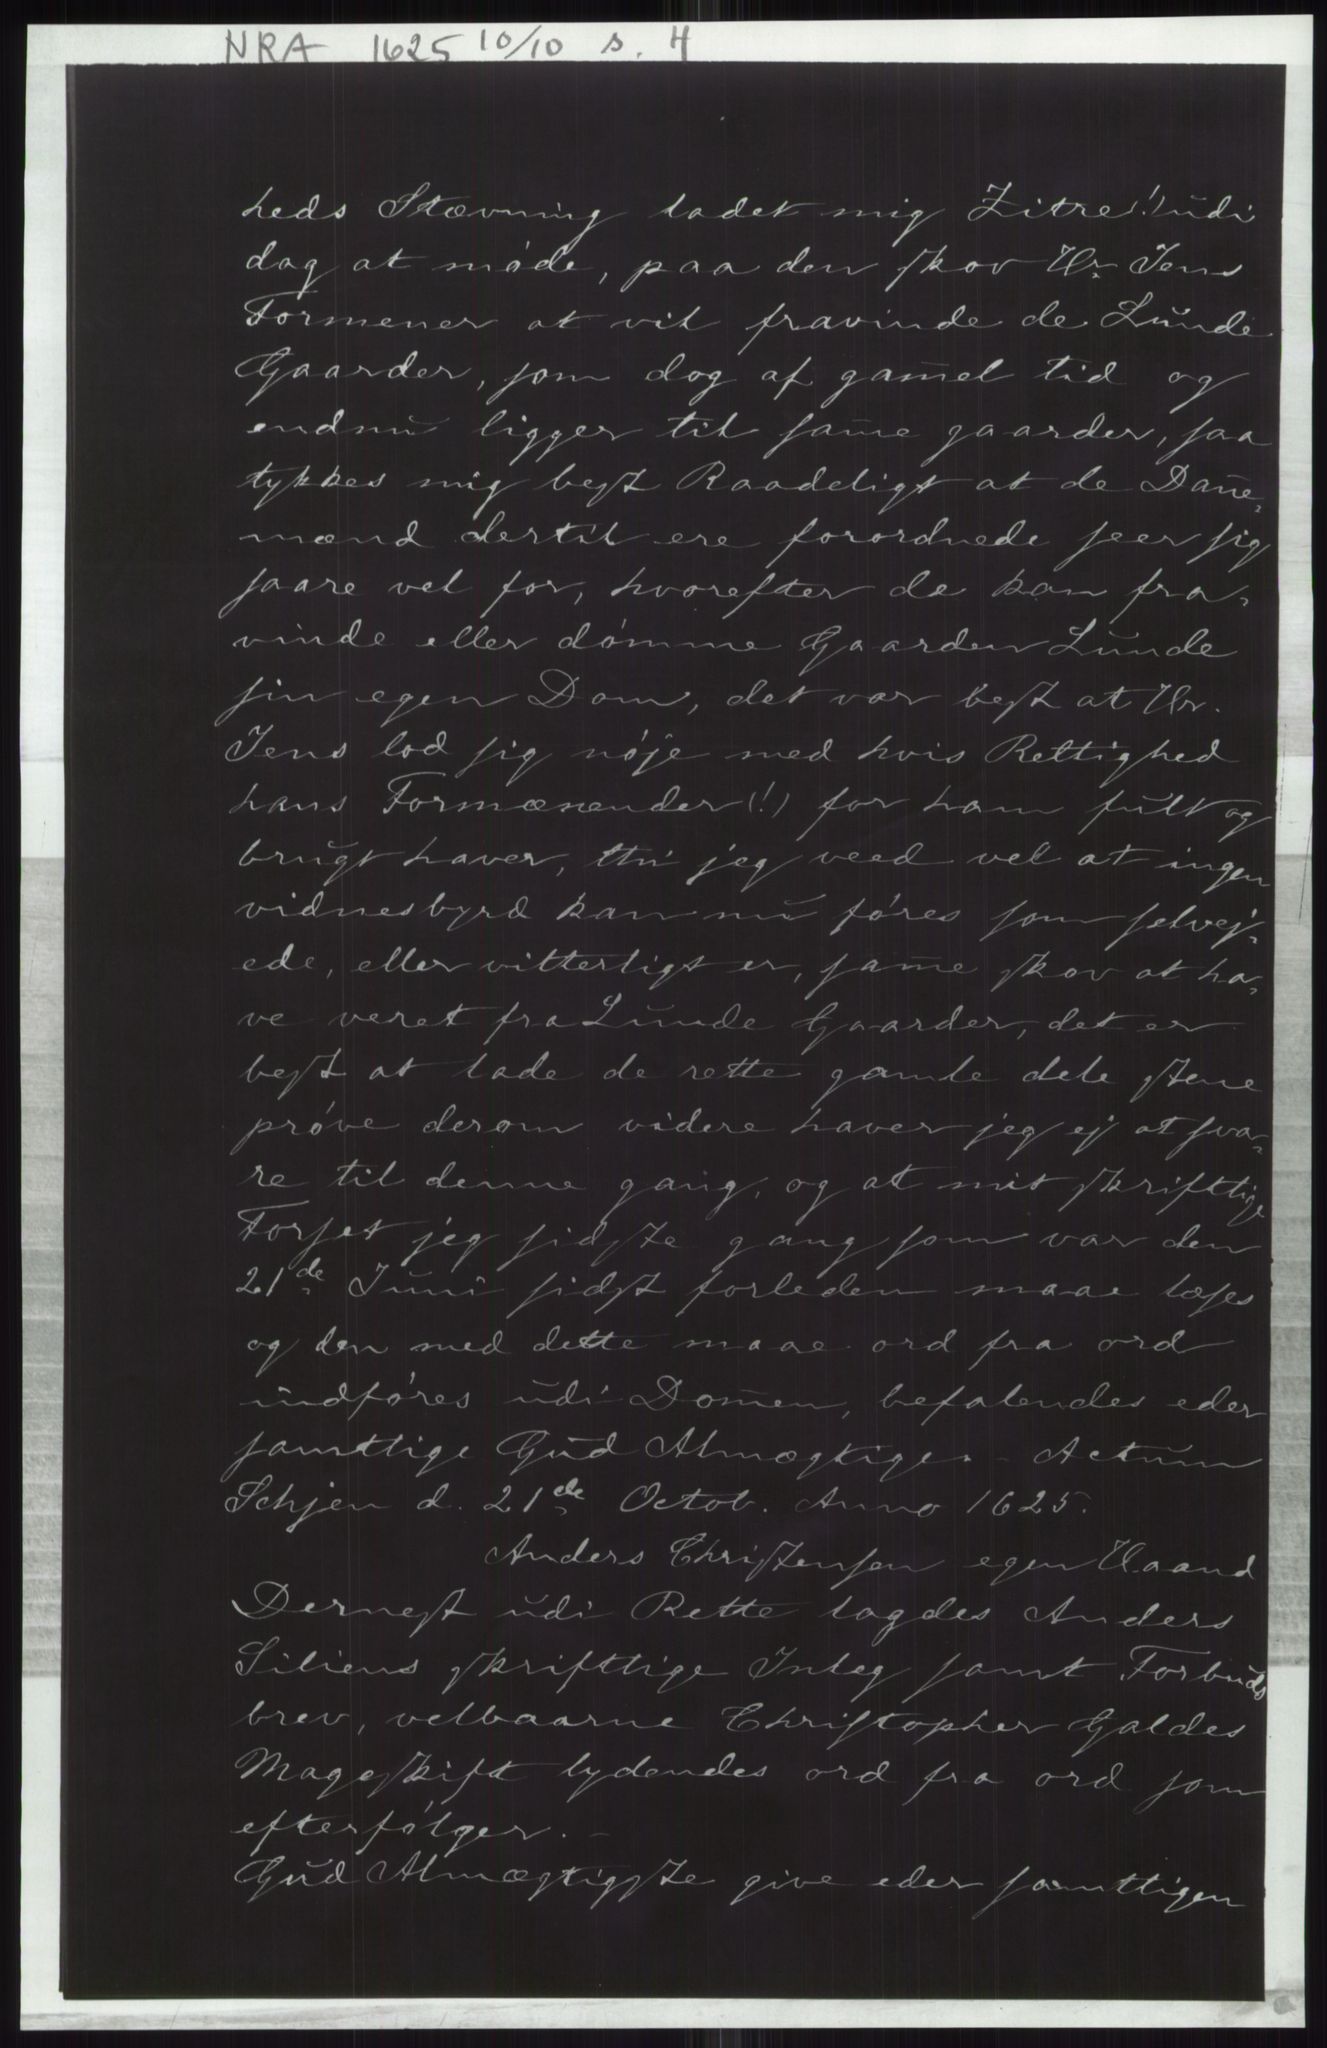 NRA 1625 10/10 s. 4
heds Stævning ladet mig Zitre(!) udi
dag at møde, paa den skov Hr. Jens
Formener at vil fravinde de Lunde
Gaarder, som dog af gam̄el tid og
endnu ligger til sam̄e gaarder, saa
tykkes mig best Raadeligt at de Dan̄e-
mænd dertil ere forordnede seer sig
saare vel for, hvorefter de kan fra-
vinde eller dømme Gaarden Lunde
sin egen Dom, det var best at Hr.
Jens lod sig nøje med hvis Rettighed
hans Formænender (!) for ham fult og
brugt haver, thi jeg veed vel at ingen
vidnesbyrd kan nu føres som selvej-
ede, eller vitterligt er, sam̄e skov at ha-
ve veret fra Lunde Gaarder, det er
best at lade de rette gamle dele stene
prøve derom videre haver jeg ej at sva-
re til denne gang, og at mit skriftlige
Forset jeg sidste gang som var den
21de Juni sidst forleden maae læses
og den med dette maae ord fra ord
indføres udi Dom̄en, befalendes eder
samttlige Gud Almægtige. - Actum
Schjen d. 21de Octob. Anno 1625.
Anders Christensen egen Haand
Dernest udi Rette lagdes Anders
Siliens skriftlige Inleg samt Forbuds
brev, velbaarne Christopher Galdes
Mageskift lydendes ord fra ord som
efterfølger. -
Gud Almægtigste give eder samttligen